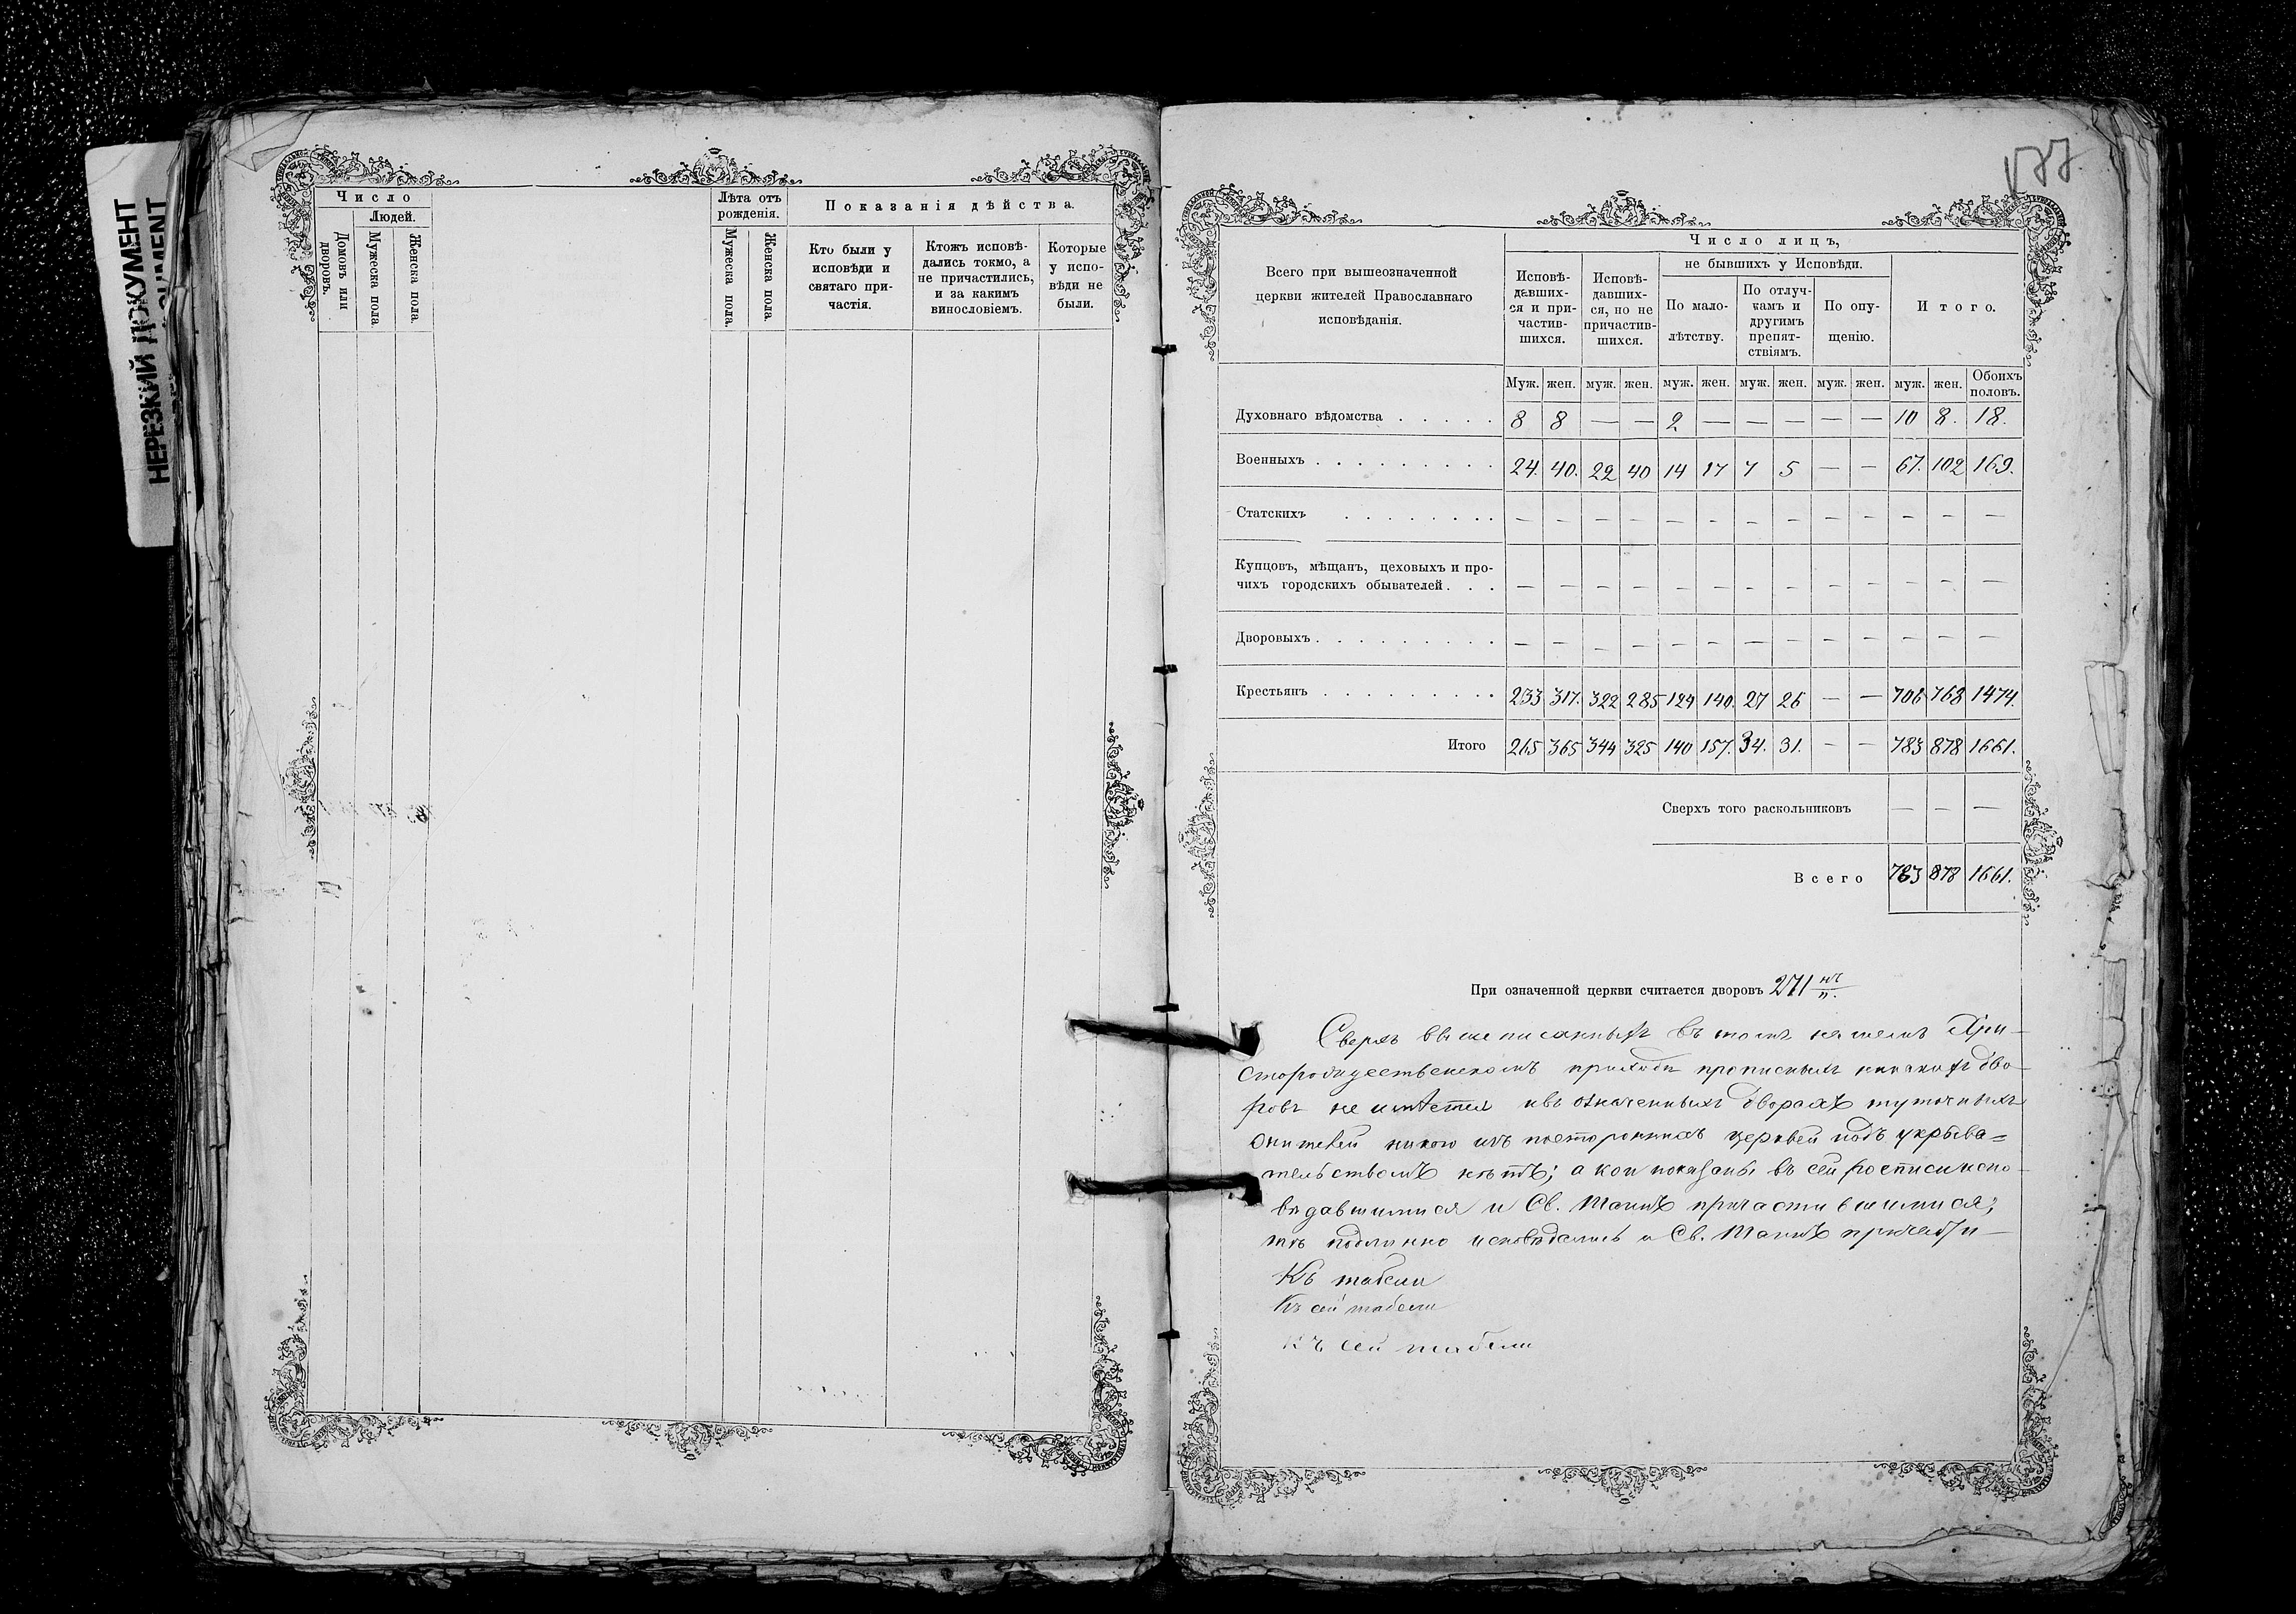 НЕРЕЗКИЙ ДОКУМЕНТ
Число
Людей.
Домовъ или дворовъ.
Мужеска пола
Женска пола.
Лѣта отъ рожденія.
Мужеска пола.
Женска пола.
Показанія дѣйства.
Кто были у исповѣди и святаго причастія.
Ктожъ исповѣдались токмо, а не причастились, и за какимъ винословіемъ.
Которые у исповѣди не были.
177
Всего при вышеозначенной
церкви жителей Православнаго
исповѣданія.
Число лицъ,
Исповѣдавшихся и причастившихся.
Исповѣдавшихся, но не причастившихся.
не бывшихъ у Исповѣди.
По малолѣтству.
По отлучкамъ и другимъ препятствіямъ.
По опущенію.
Итого.
Муж. жен. муж. жен. муж. жен. муж. жен. муж. жен. муж. жен. Обоихъ половъ.
Духовнаго вѣдомства . . . . . 8 8 — — 2 — — — — — 10 8. 18.
Военныхъ . . . . . . . . . 24. 40. 22 40 14 17 7 5 — — 67. 102 169.
Статскихъ . . . . . . . . — — — — — — — — — — — — —
Купцовъ, мѣщанъ, цеховыхъ и про-
чихъ городскихъ обывателей . . . — — — — — — — — — — — — —
Дворовыхъ . . . . . . . . . — — — — — — — — — — — — —
Крестьянъ . . . . . . . . . 233 317. 322 285 124 140. 27 26 — — 706 768 1474.
Итого 265 365 344 325 140 157. 34. 31. — — 783 878 1661.
Сверхъ того раскольниковъ — — —
Всего 783 878 1661.
При означенной церкви считается дворовъ 271
Сверхъ вышеписанныхъ въ томъ нашемъ Хри-
сторождественскомъ приходѣ прописныхъ никакихъ дво-
ровъ не имѣется и въ означенныхъ дворахъ
жителей никого изъ постороннихъ церквей подъ укрыва=
тельствомъ нѣтъ; а кои показаны въ сей росписи испо-
вѣдавшимися и Св. Таинъ причастившимися;
тѣ подлинно исповѣдались и Св. Таинъ
Къ табели
Къ сей табели
Къ сей табели